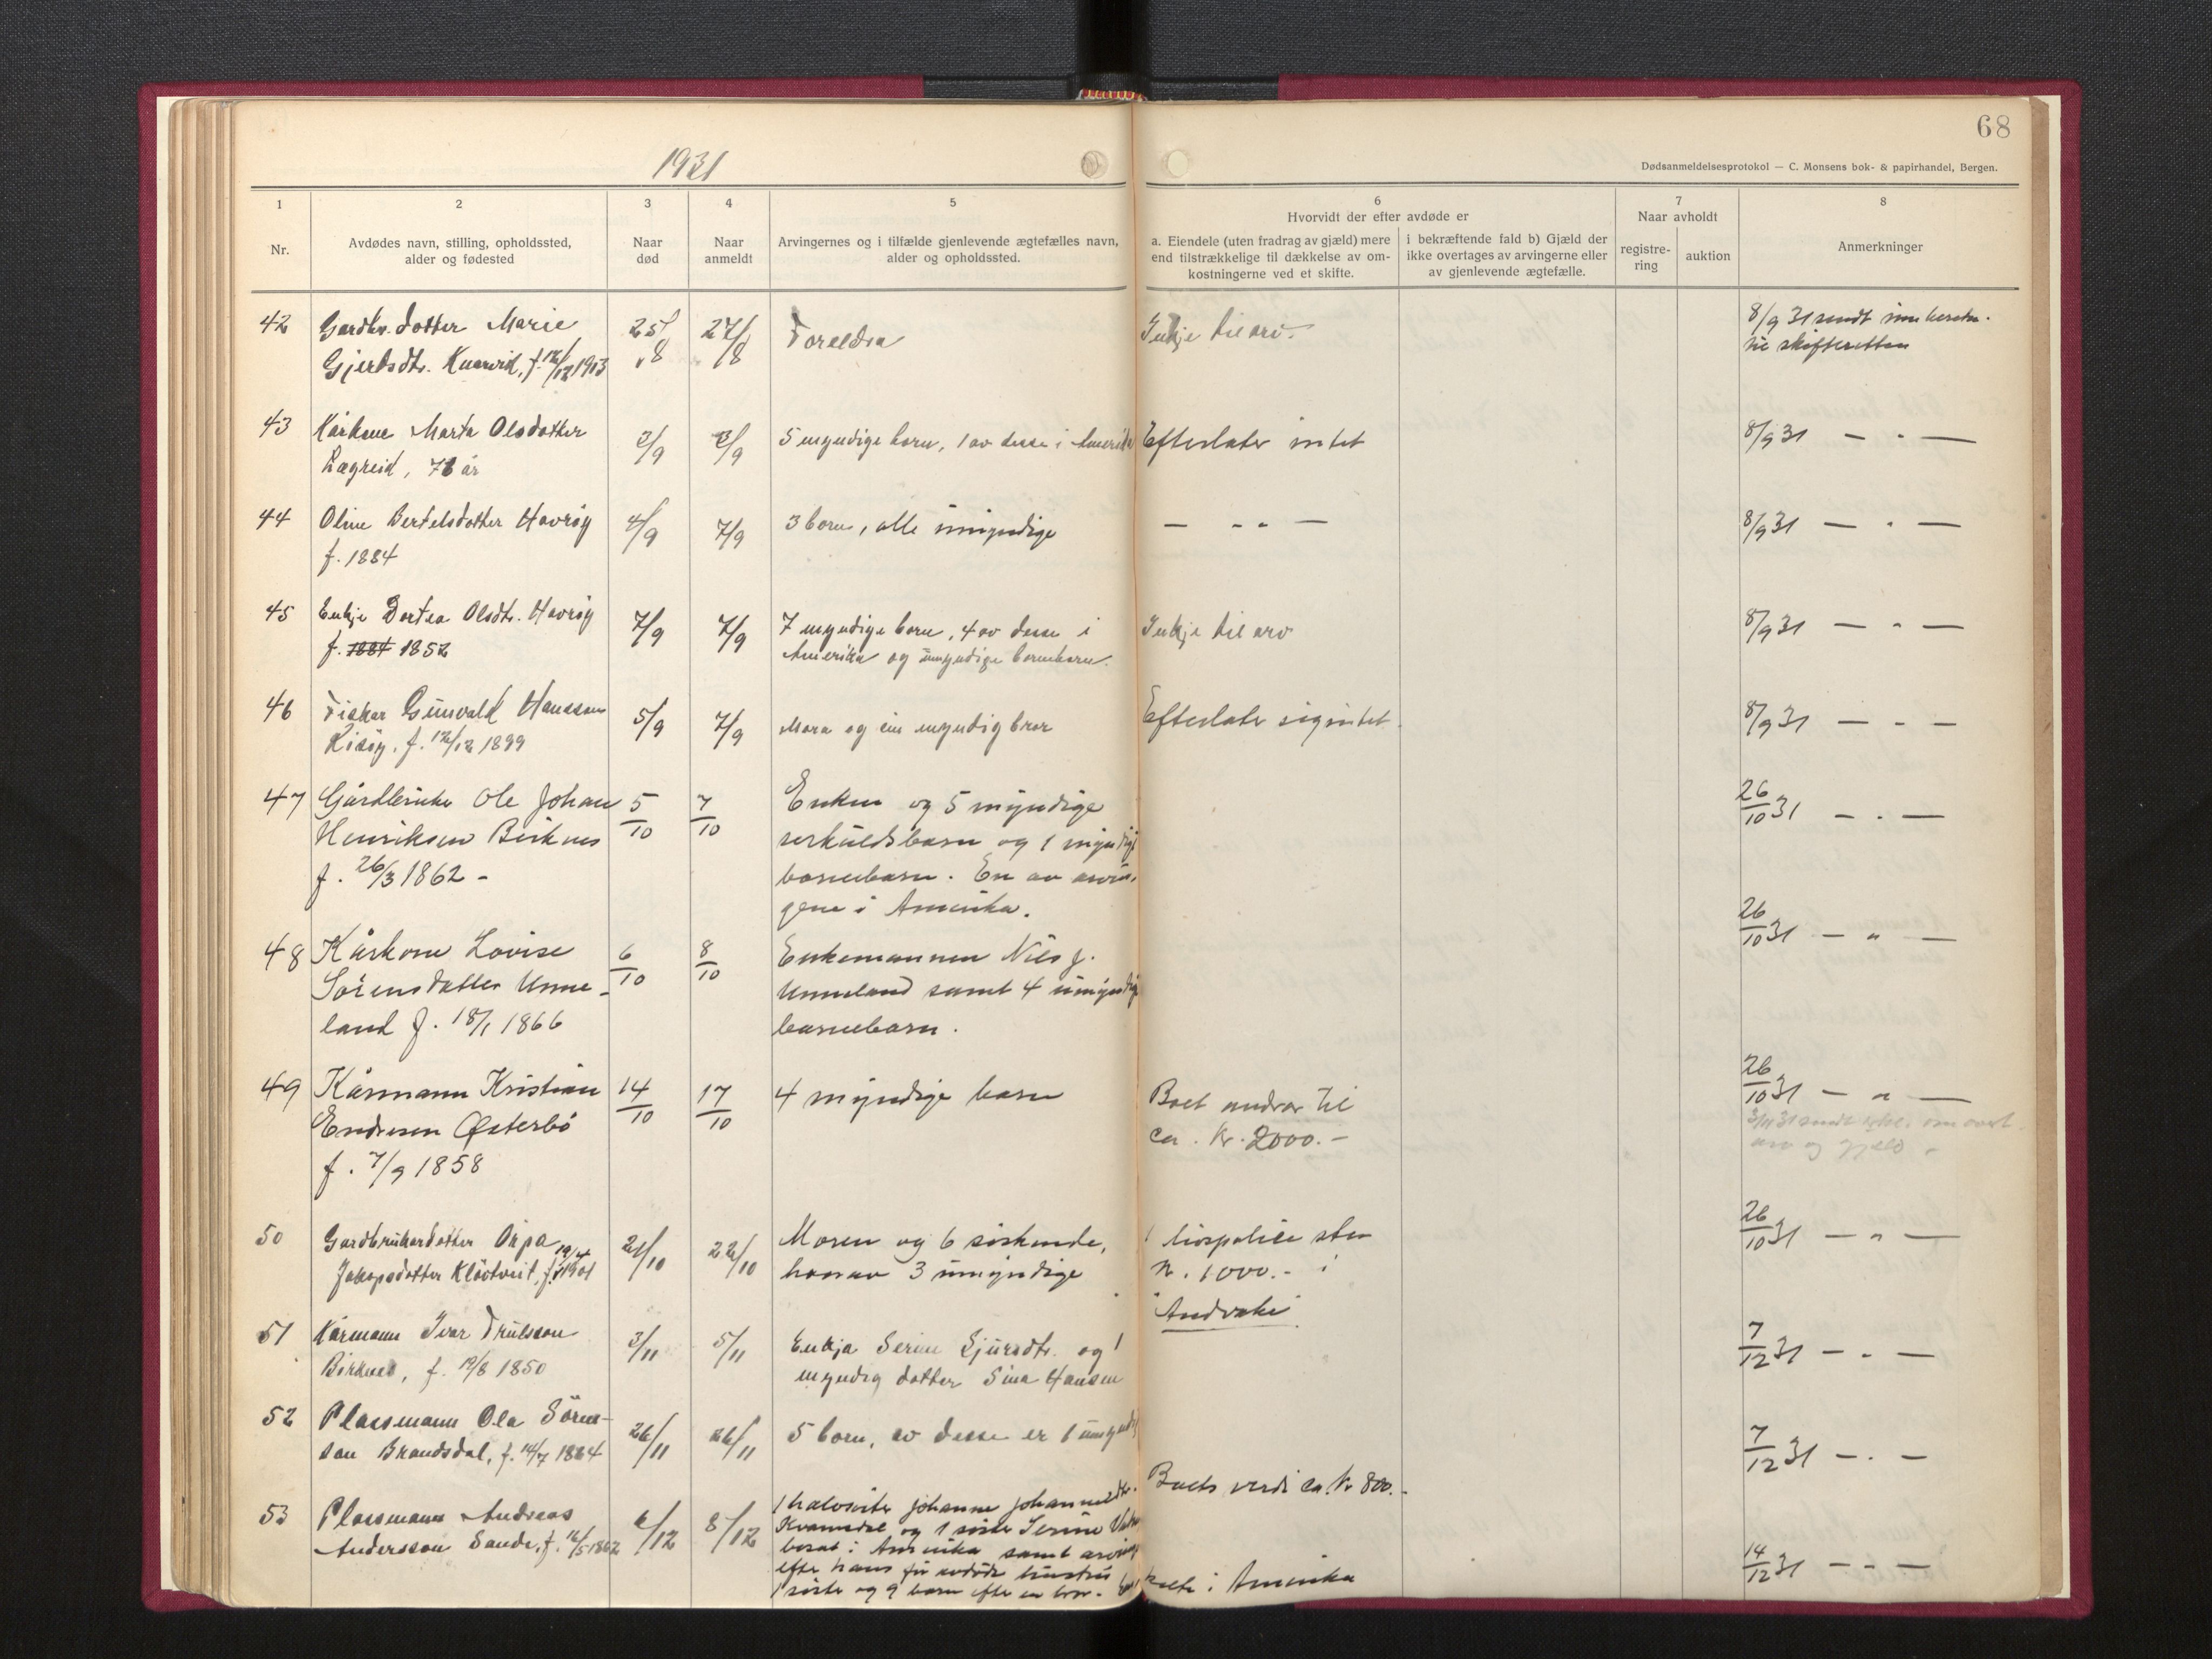 68
1931
Dødsanmeldelsesprotokol — C. Monsens bok- & papirhandel, Bergen.
1
Nr.
2
Avdødes navn, stilling, opholdssted,
alder og fødested
3
Naar
død
4
Naar
anmeldt
5
Arvingernes og i tilfælde gjenlevende ægtefælles navn,
alder og opholdssted.
6
Hvorvidt der efter avdøde er
a. Eiendele (uten fradrag av gjæld) mere
end tilstrækkelige til dækkelse av om-
kostningerne ved et skifte.
i bekræftende fald b) Gjæld der
ikke overtages av arvingerne eller
av gjenlevende ægtefælle.
7
Naar avholdt
registre-
ring
auktion
8
Anmerkninger
42
Gardbr. dotter Marie
Gjertsdtr. Kvarvid, f. 12/12 1913
25/8
27/8
Foreldra
Inkje til arv.
8/9 31 sendt
til skifteretten
43
Kårkone Marta Olsdotter
Lægreid, år
3/9
3/9
5 myndige born, 1 av desse i Amerika
Efterlater intet
8/9 31 — " —
44
Oline Bertelsdotter Havröy
f. 1884
4/9
7/9
3 born, alle umyndige
— " —
8/9 31 — " —
45
Enkje Dortea Olsdtr. Havröy
f. 1884 1852
7/9
7/9
7 myndige born, 4 av desse i
Amerika og umyndige borneborn.
Inkje til arv
8/9 31 — " —
46
Fisker Gunvald Hanssen
f. 12/12 1899
5/9
7/9
Mora og ein myndig bror
Efterlater sig intet.
8/9 31 — " —
47
Gårdbruker Ole Johan
Henriksen Birknes
f. 26/3 1862 -
5/10
7/10
Enken og 5 myndige
særkuldsbarn og 1 myndig
barnebarn. En av arvin-
gene i Amerika.
26/10 31 — " —
48
Kårkone Lovise
Sörensdatter Unne-
land f. 18/1 1866
6/10
8/10
Enkemannen Nils J.
Unneland samt 4 umyndige
barnebarn.
26/10 31 — " —
49
Kårmann Kristian
Endresen Østerbö
f. 7/9 1858
14/10
17/10
4 myndige barn
Boet andrar til
ca. kr. 2000.-
26/10 31 — " —
3/11 31 sendt om overt.
arv og gjeld -
50
Gardbrukardotter
Jakopsdotter Klövtveit, f. 19/4
21/10
22/10
Moren og 6 söskende,
hvorav 3 umyndige
1 livspolise stor
kr. 1000.- i
"Andvake"
26/10 31 — " —
51
Kårmann Ivar Trulsson
Birknes, f. 19/8 1850
3/11
5/11
Enkja Serine Sjursdtr. og 1
myndig dotter Sina Hansen
7/12 31 — " —
52
Plassmann Ola Sören-
son Brandsdal, f. 14/7 1864
26/11
26/11
5 born, av desse er 1 umyndig
Boets verdi ca. kr 800.-
7/12 31 — " —
53
Plassmann Andreas
Andersson Sande, f. 16/5 1862
6/12
8/12
1 halvsöster Johanne Johannesdtr.
Kvamsdal og 1 söster Serine
bosat i Amerika samt arvinger
efter hans för avdöde hustru
1 söster og 9 barn efter en bror.
i Amerika
14/12 31 — " —